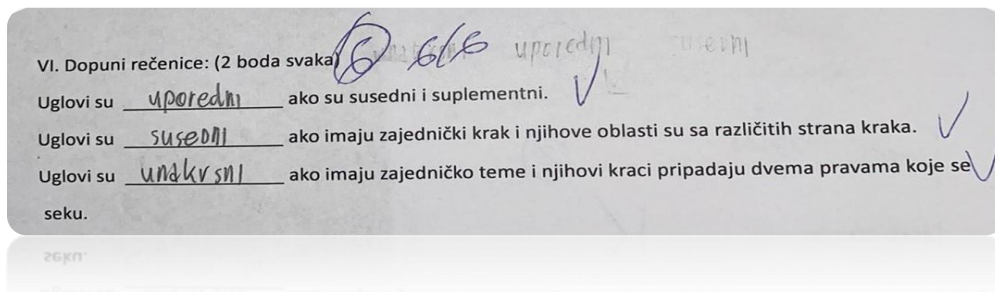 VI. Dopuni rečenice: (2 boda svaka) 6 6/6 uporedni
Uglovi su uporedni ako su susedni i suplementni.
Uglovi su susedni ako imaju zajednički krak i njihove oblasti su sa različitih strana kraka.
Uglovi su unakrsni ako imaju zajedničko teme i njihovi kraci pripadaju dvema pravama koje se
seku.